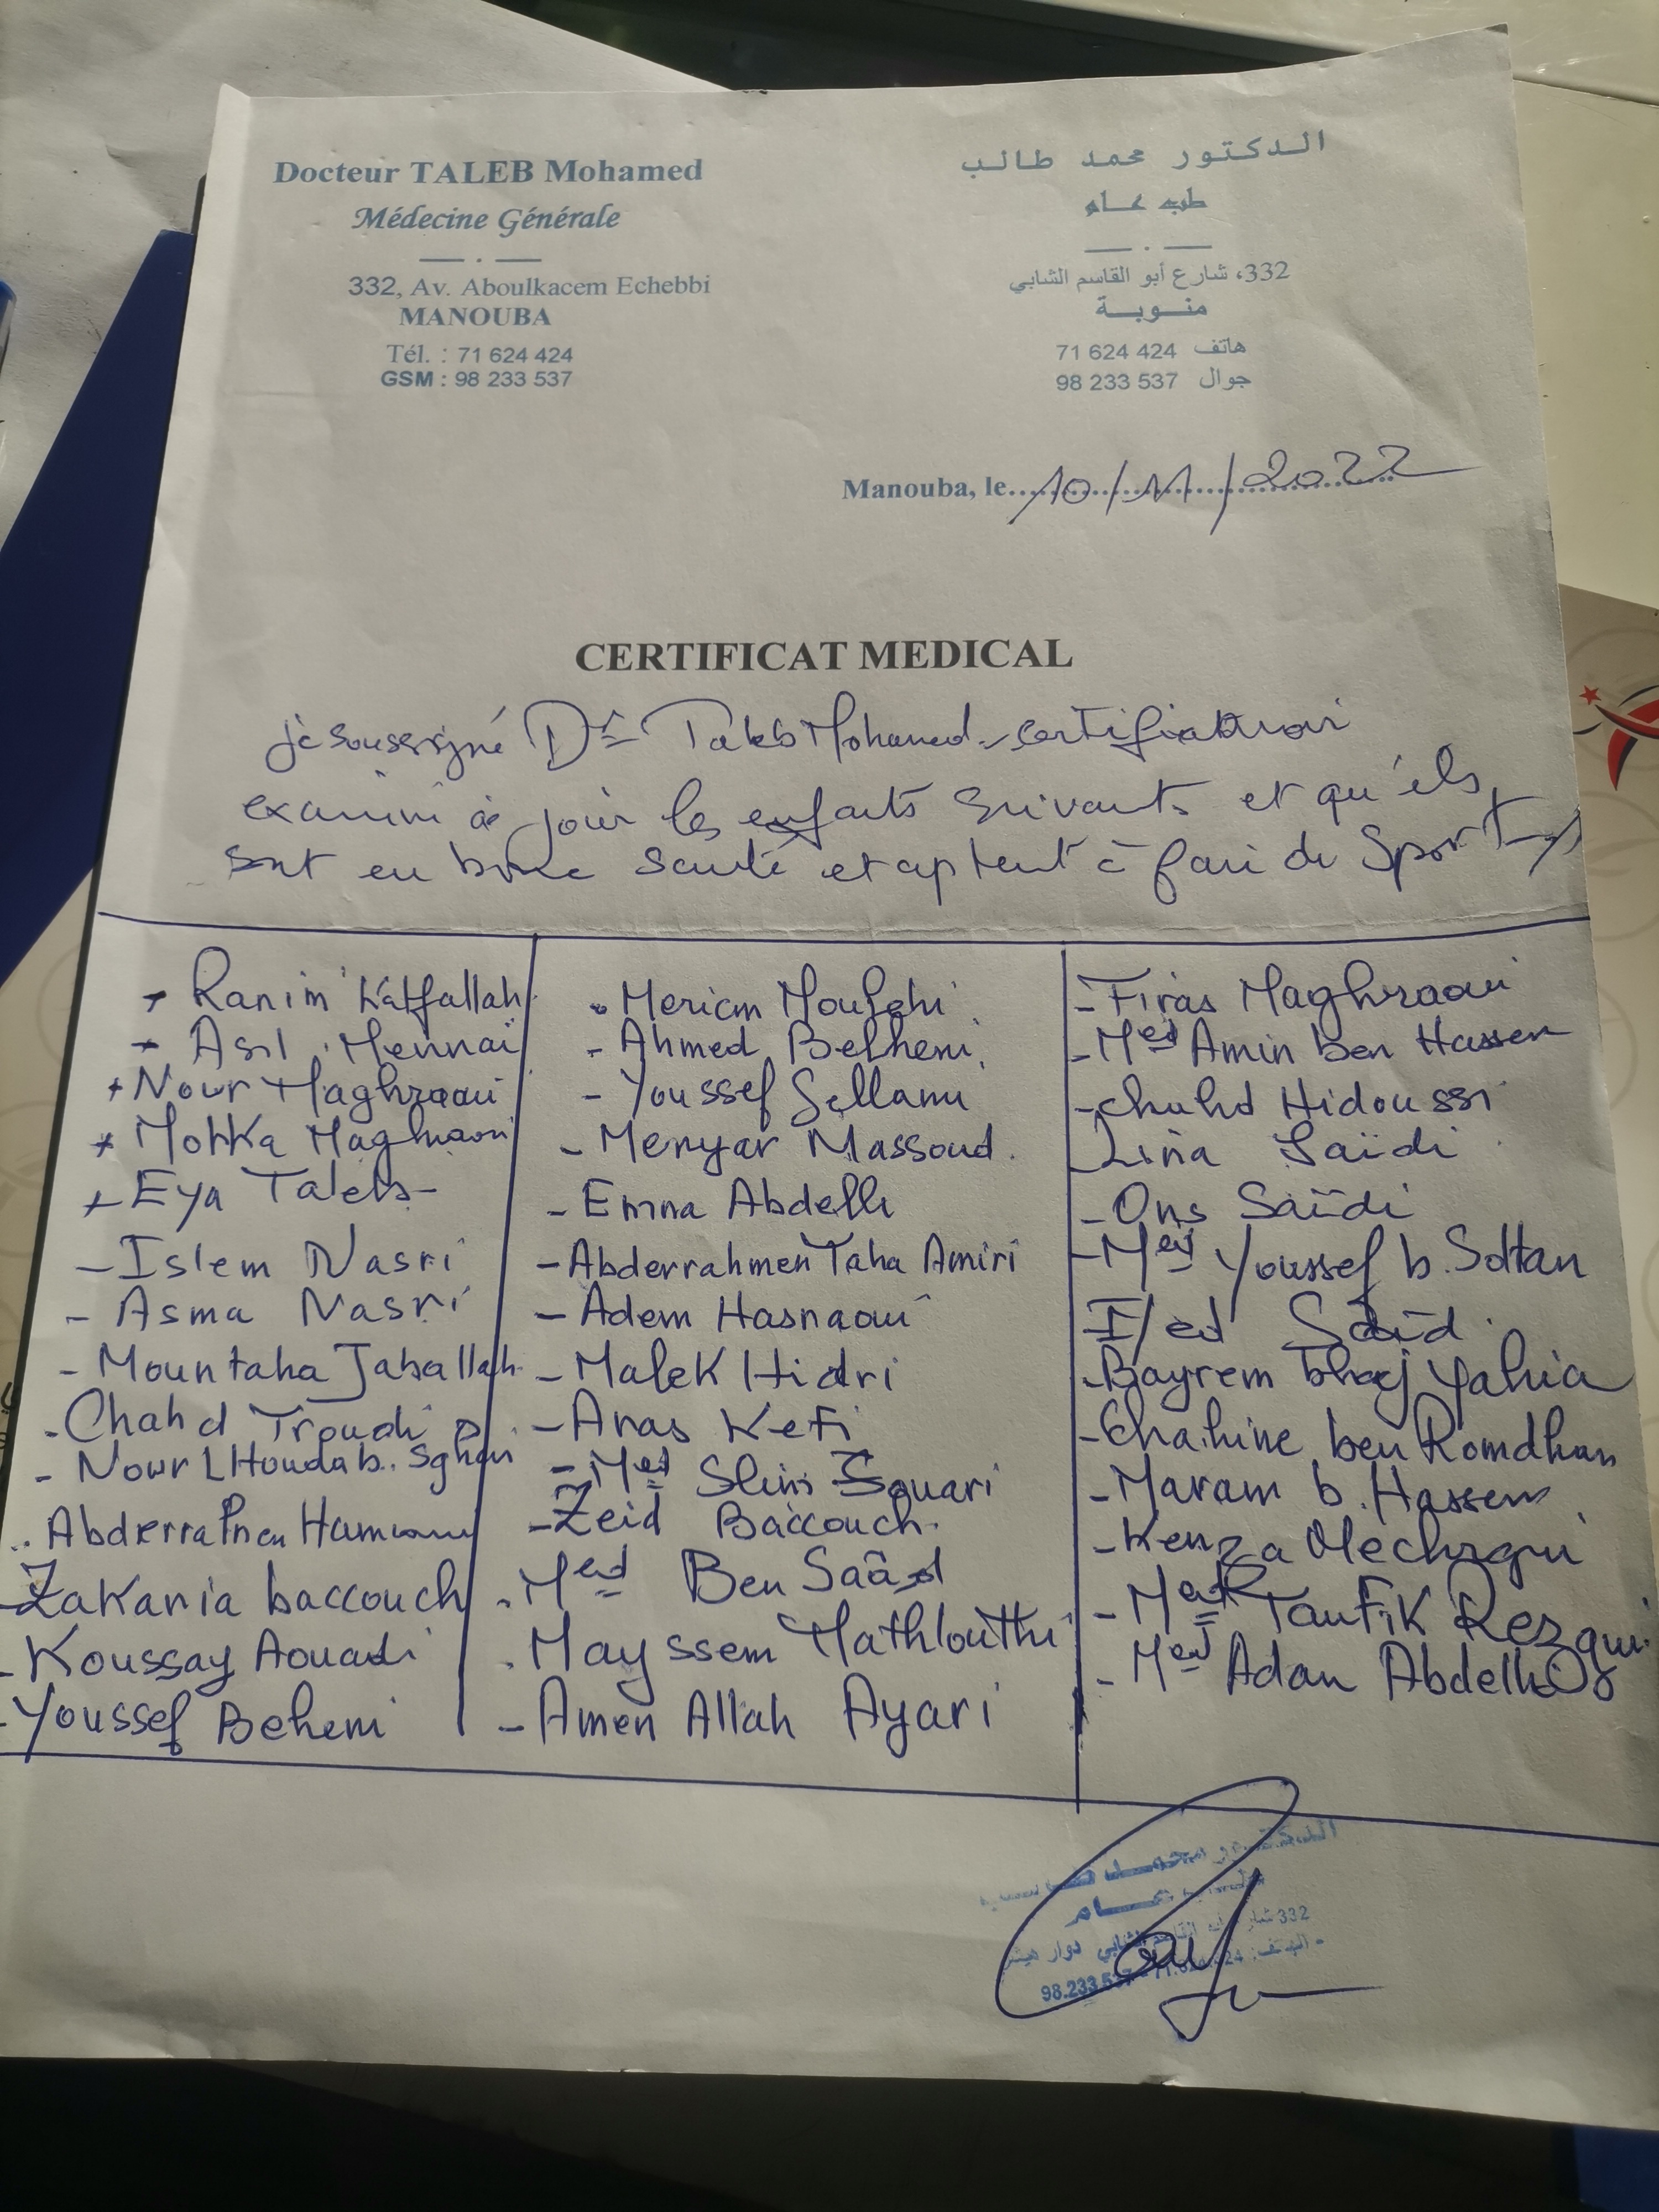 Docteur TALEB Mohamed
Médecine Générale
332, Av. Aboulkacem Echebbi
MANOUBA
Tél. : 71 624 424
GSM : 98 233 537
الدكتور محمد طالب
طب عام
332، شارع أبو القاسم الشابي
منوبة
هاتف 71 624 424
جوال 98 233 537
Manouba, le 10/11/2022
CERTIFICAT MEDICAL
je soussigné Dr Taleb Mohamed certifie avoir
examiné ce jour les enfants suivants et qu'ils
sont en bonne santé et à faire du Sport
+ Ranim
+ Asil Mennaï
+ Nour Maghraoui
+ Maghraoui
+ Eya Taleb
- Islem Nasri
- Asma Nasri
- Mountaha Jaballah
- Chahd Troudi
- Nour LHouda b. Sghair
Abderrahmen
- Zakaria baccouch
- Koussay Aouadi
- Youssef Behemi
- Meriem
- Ahmed Belhemi
- Youssef Sellami
- Menyar Massoud
- Emna Abdelli
- Abderrahmen Taha Amiri
- Adem Hasnaoui
- Malek Hidri
- Anas Kefi
- Med Slim Souari
- Zeid Baccouch
- Med Ben Saâd
- Mayssem Mathlouthi
- Amen Allah Ayari
- Firas Maghraoui
- Med Amin ben Hassen
- Chahd Hidoussi
- Lina Saïdi
- Ons Saïdi
- Med Youssef b. Soltan
Saïd
- Bayrem bhaj Yahia
- Chahine ben Romdhan
- Maram b. Hassen
- Kenza Mechrgui
- Med Taufik Rezgui
- Med Adan Abdelli
عام
332
98.233.537